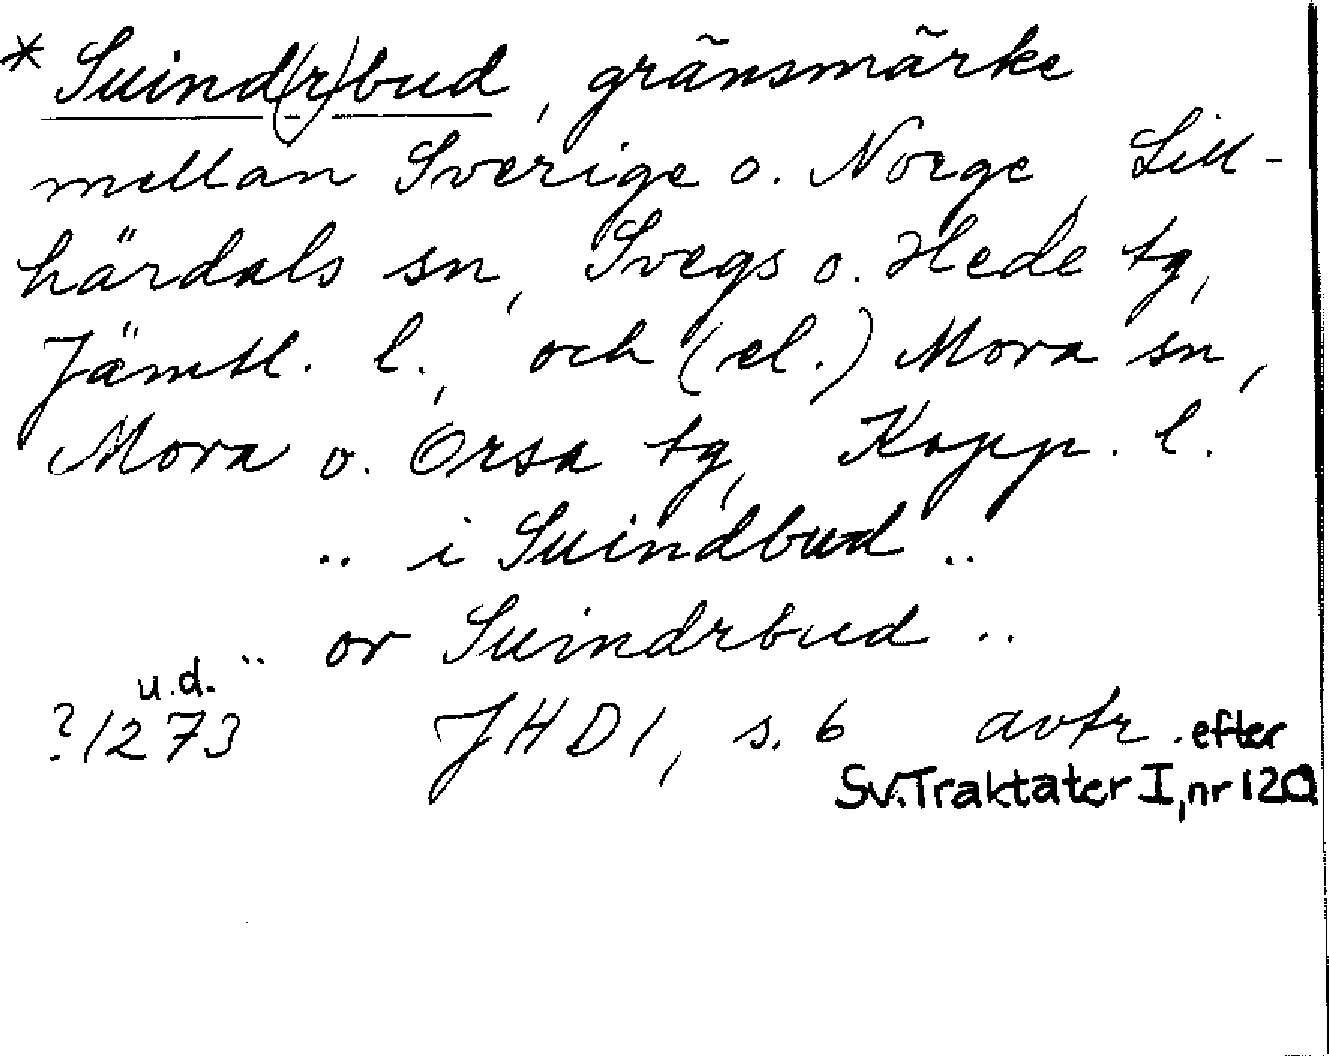 * Suind(r)bud, gränsmärke
mellan Sverige o. Norge, Lill-
härdals sn, Svegs o. Hede tg,
Jämtl. l., och (el.) Mora sn,
Mora o. Orsa tg, Kopp. l.
.. i Suindbud ..
.. or Suindrbud ..
u.d.
?1273 JHD1, s. 6 avtr. efter
Sv. Traktater I, nr 120